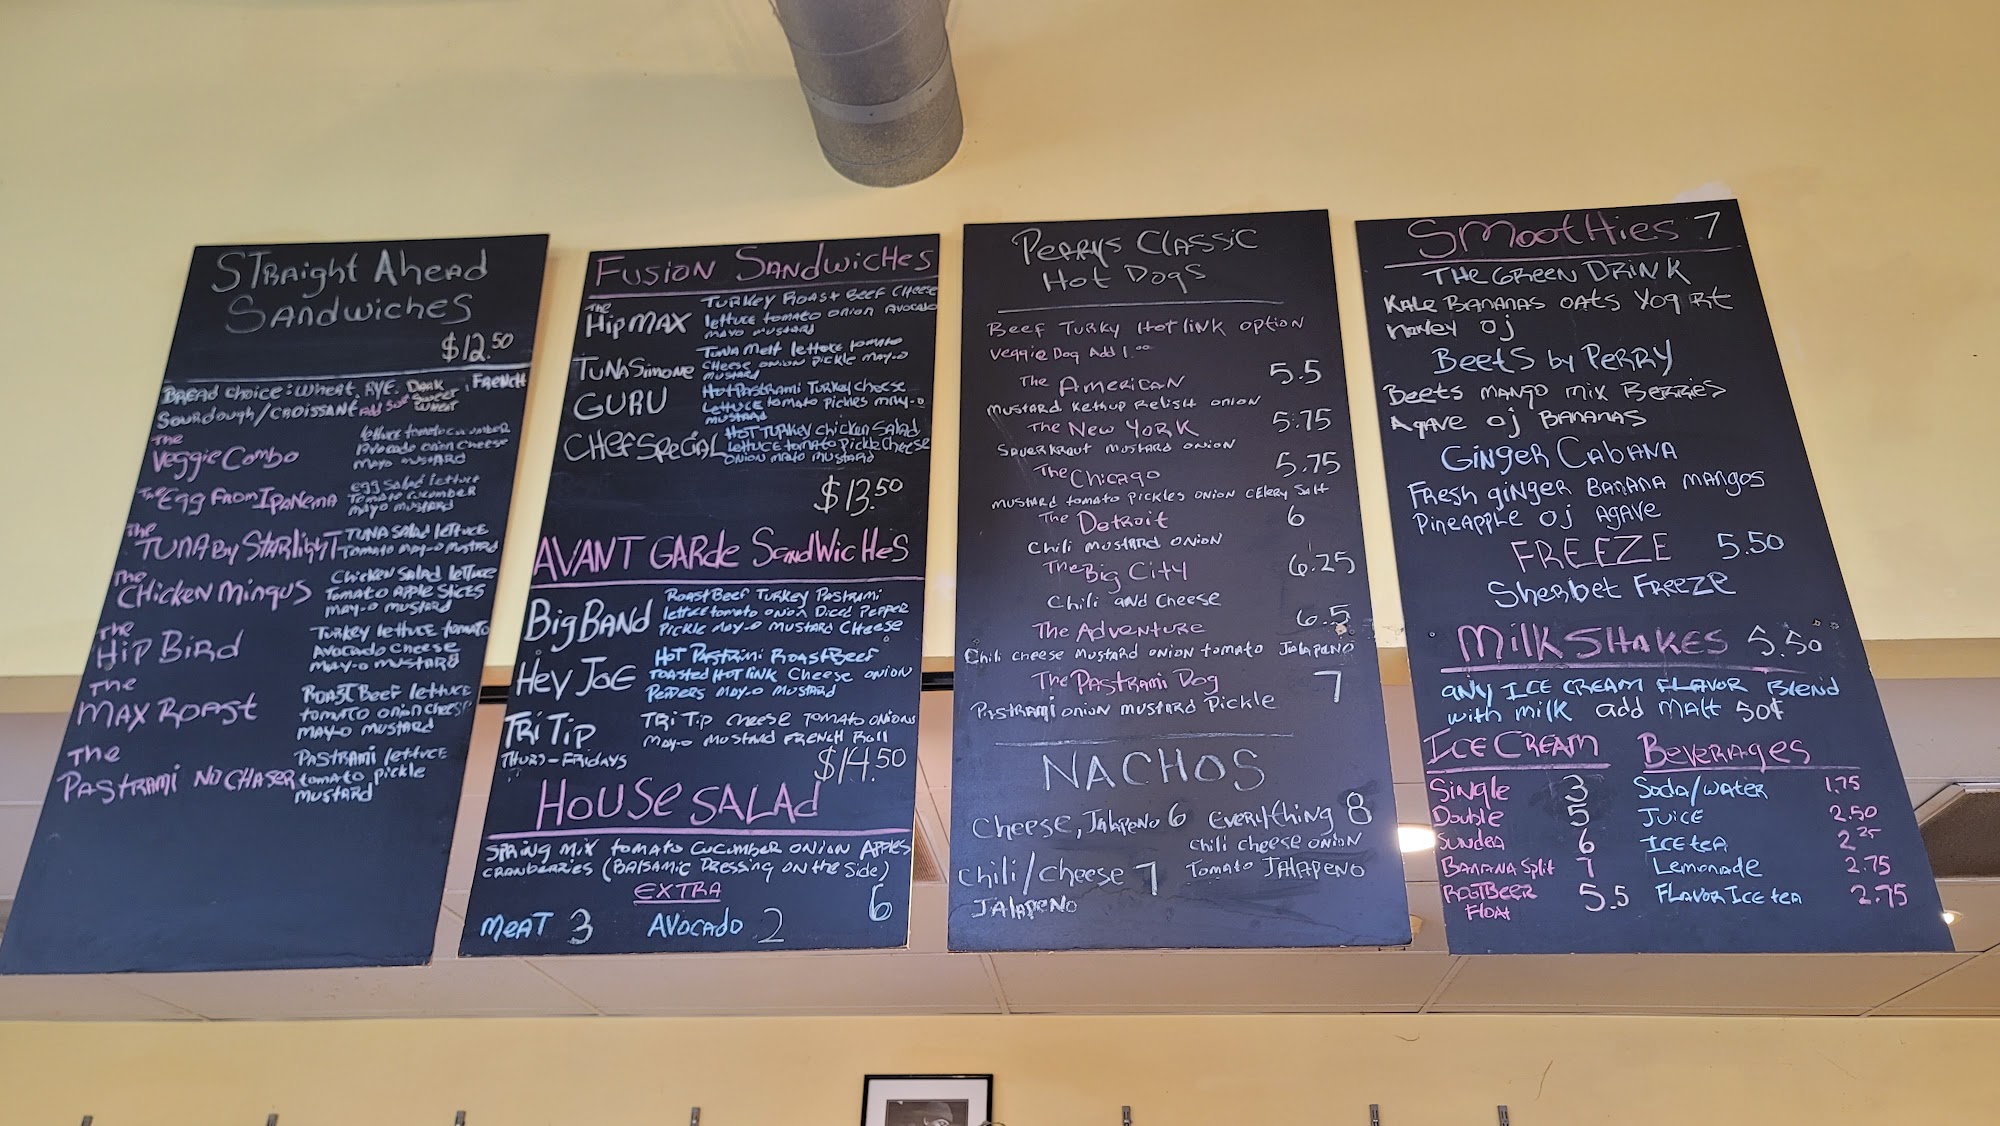 STRAIGHT AHEAD
SANDWICHES
$12.50
BREAD CHOICE: WHEAT. RYE. DARK SWEET WHEAT, FRENCH
SOURDOUGH/CROISSANT Add 50¢
The Veggie Combo
lettuce tomato cucumber
Avocado onion cheese
mayo mustard
The Egg From Ipanema
egg salad lettuce
Tomato cucumber
mayo mustard
The TUNA By Starlight
TUNA SALAD lettuce
Tomato may-o mustard
The Chicken Mingus
Chicken Salad lettuce
Tomato Apple Slices
may-o mustard
The Hip Bird
Turkey lettuce tomato
Avocado Cheese
may-o mustard
The MAX ROAST
ROAST BEEF lettuce
tomato onion cheese
may-o mustard
The
Pastrami No Chaser
Pastrami lettuce
tomato pickle
mustard
FUSION SANDWICHES
The Hip MAX
Turkey Roast Beef Cheese
lettuce tomato onion avocado
mayo mustard
TUNA Simone
Tuna melt lettuce tomato
cheese onion pickle may-o
mustard
GURU
Hot Pastrami Turkey cheese
Lettuce tomato pickles may-o
mustard
CHEF SPECIAL
HOT TURKEY chicken Salad
lettuce tomato Pickle Cheese
onion mayo mustard
$13.50
AVANT GARDE SANDWICHES
Big BAND
Roast Beef Turkey Pastrami
lettuce tomato onion Diced Pepper
Pickle may-o mustard cheese
Hey Joe
Hot Pastrami Roast Beef
Toasted Hot link Cheese onion
Peppers may-o mustard
TRI TIP
THURS-FRIDAYS
TRI TIP cheese tomato onions
may-o mustard French Roll
$14.50
HOUSE SALAD
SPRING MIX tomato cucumber onion Apples
cranberries (Balsamic Dressing on the Side)
6
EXTRA
Meat 3 Avocado 2
Perrys Classic
Hot Dogs
Beef Turky Hot link option
Veggie Dog Add 1.00
The American 5.5
mustard Kethup Relish onion
The New York 5.75
Sauerkraut mustard onion
The Chicago 5.75
mustard tomato pickles onion celery salt
The Detroit 6
Chili mustard onion
The Big City 6.25
Chili and Cheese
The Adventure 6.5
Chili cheese mustard onion tomato Jalapeno
The Pastrami Dog 7
Pastrami onion mustard Pickle
NACHOS
Cheese, Jalapeno 6 Everything 8
chili cheese onion
Tomato Jalapeno
Chili/cheese 7
Jalapeno
Smoothies 7
THE GREEN DRINK
Kale Bananas oats Yogurt
Honey oj
Beets by Perry
Beets mango mix Berries
Agave oj BANANAS
Ginger Cabana
Fresh ginger Banana mangos
Pineapple oj agave
FREEZE 5.50
Sherbet Freeze
MILK SHAKES 5.50
any ICE CREAM FLAVOR Blend
with milk add malt 50¢
ICE CREAM
Single 3
Double 5
Sundea 6
Banana Split 7
Rootbeer Float 5.5
Beverages
Soda/water 1.75
Juice 2.50
Ice tea 2.25
Lemonade 2.75
Flavor Ice tea 2.75